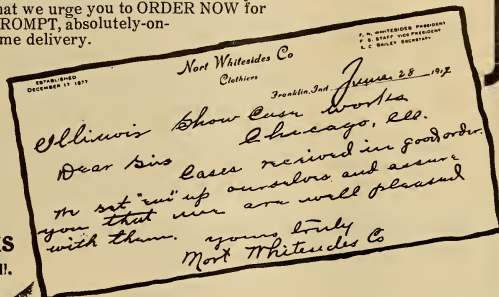 hat we urge you to ORDER NOW for
ROMPT, absolutely-on-
me delivery.
ESTABLISHED
DECEMBER 17 1877
Nort Whitesides Co
Clothiers
F. N. WHITESIDES PRESIDENT
F. S. STAFF VICE PRESIDENT
S. C. BAILEY SECRETARY
Franklin, Ind. June 28 191
Illinois Show Case works
Chicago, Ill.
Dear Sirs
Cases recived in good order.
We set "em" up ourselves and assure
you that we are well pleased
with them. yours truly
Mort Whitesides Co
KS
l!.